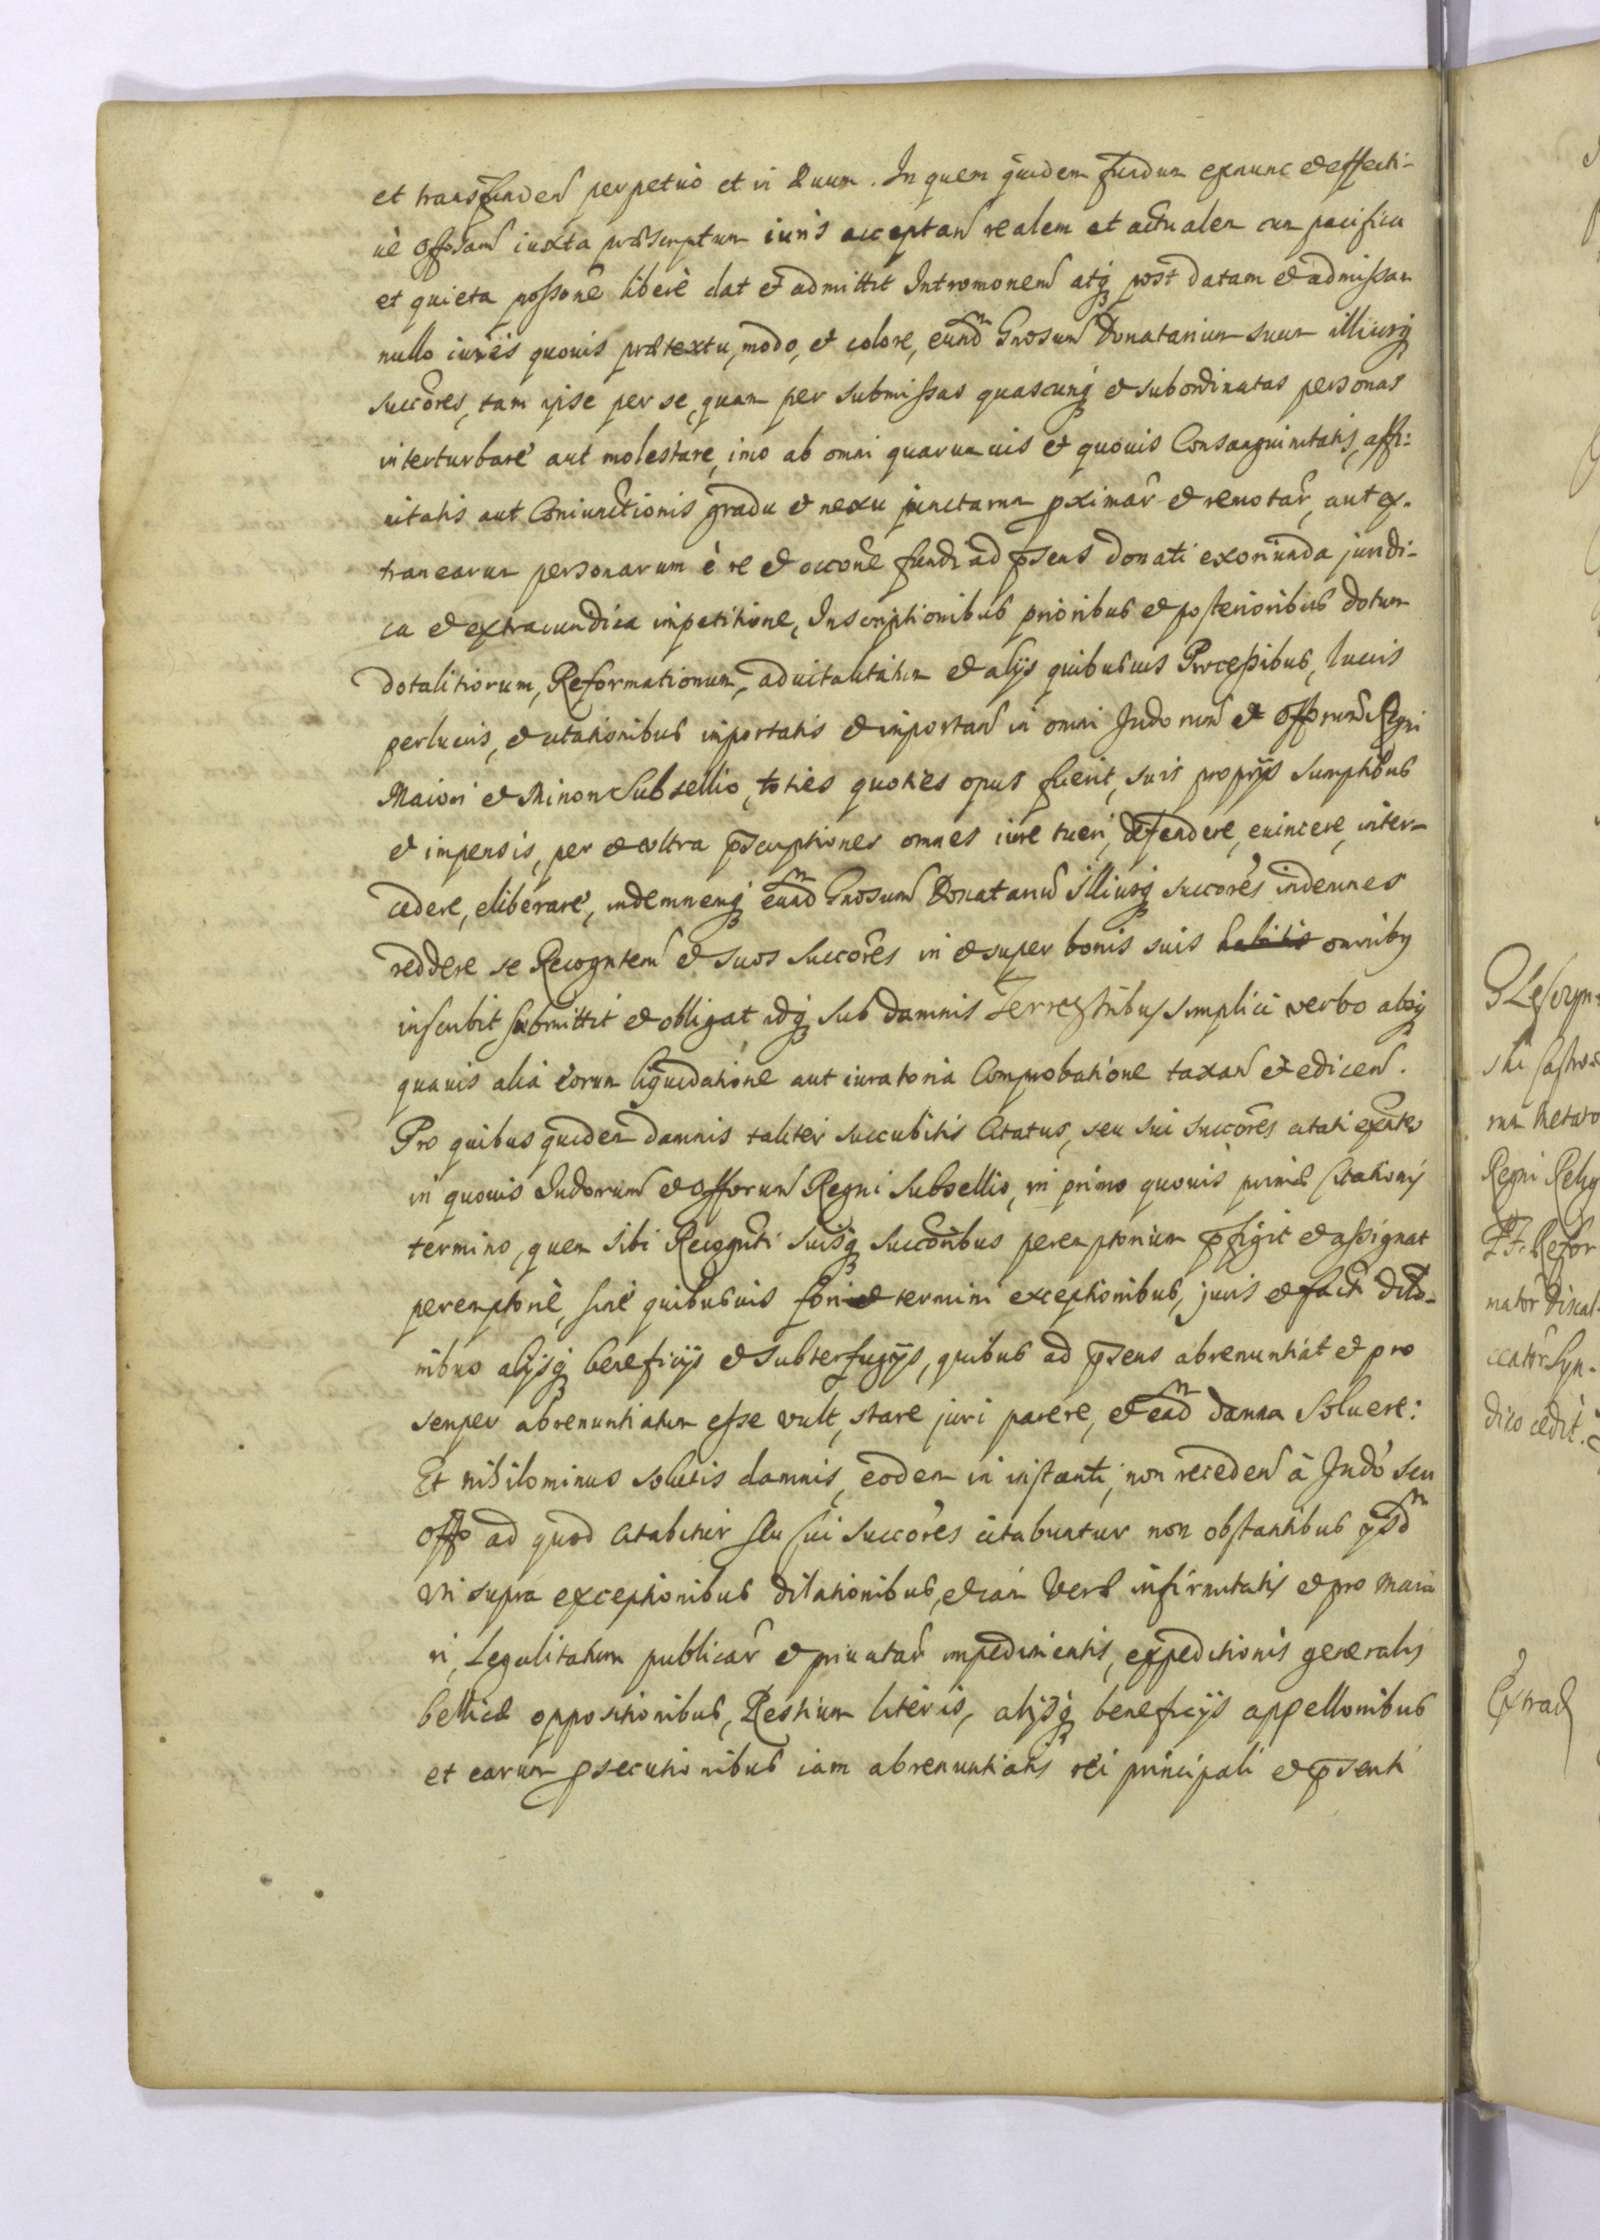 et transfunden perpetuò et in æuum. In quem quidem fundum exnunc et effecti-
uè Offosam iuxta præscriptum iuris acceptan realem et actualem cum pacifica
et quieta possone liberè dat et admittit Intromonem atq post datam et admissam
nullo iuris quouis prætextu, modo, et colore, eund Gnosum Donatarium suum illiusq
succores, tam ipse per se, quam per submissas quascunq et subordinatas personas
interturbare aut molestare, imo ab omni quarumuis et quouis Consanguinitatis, affi-
nitatis aut Coniunctionis gradu et nexu junctarum pximar et remotar, aut ex-
tranearum personarum è re et occone fundi ad psens donati exoriunda juridi-
ca et extraiuridica impetitione, Inscriptionibus prioribus et posterioribus dotum
dotalitiorum, Reformationum, aduitalitatum et alijs quibusuis Processibus, lucris
perlucris, et citationibus importatis et importan in omni Judorum et Offorum Regni
Maiori et Minori Subsellio, toties quoties opus fuerit, suis proprijs sumptibus
et impensis, per et vltra pscriptiones omnes iure tueri, defendere, euincere, inter-
cedere, eliberare, indemnemq eund Gnosum Donatariu illiusq succores indemnes
reddere se Recogntem et suos succores in et super bonis suis habitis omniby
inscribit submittit et obligat idq sub damnis Terrestribus simplici verbo absq
quauis alia eorum liquidatione aut iuratoria Comprobatione taxan et edicen.
Pro quibus quidem damnis taliter succubitis Citatus, seu sui succores citati exntes
in quouis Judorum et Offorum Regni Subsellio, in primo quouis primæ Citationis
termino, quem sibi Recognti suisq succoribus peremptorium pfigit et assignat
peremptoriè, sine quibusuis fori et termini exceptionibus, juris et facti dilao-
nibus alijsq beneficijs et subterfugijs, quibus ad psens abrenuntiat et pro
semper abrenuntiatum esse vult, stare juri parere, et ead damna soluere:
Et nihilominus solutis damnis, eodem in instanti, non receden à Judo seu
Offo ad quod citabitur seu sui succores citabuntur non obstantibus psd
vti supra exceptionibus dilationibus, etiam Veræ infirmitatis et pro maio
ri, Legalitatum publicar et priuatar impedimentis, expeditionis generalis
bellicæ oppositionibus, Restium literis, alijsq beneficijs appellonibus
et earum psecutionibus iam abrenuntiatis rei principali et psenti